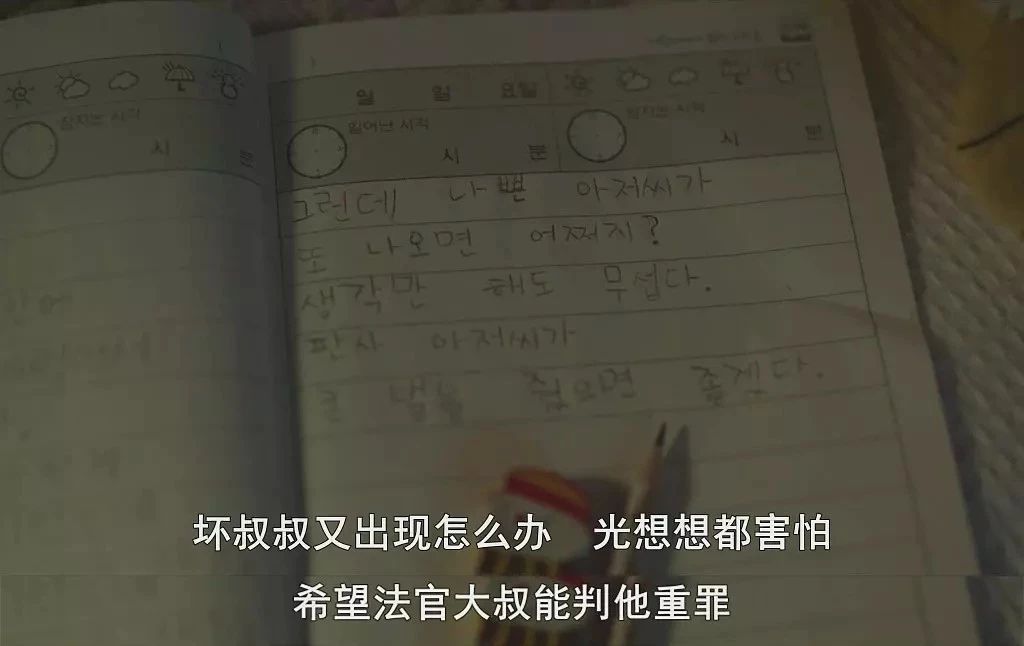 일 일 요일
잠자는 시각
일어난 시각
잠자는 시각
시 분
시 분
시 분
그런데 나쁜 아저씨가
또 나오면 어쩌지?
생각만 해도 무섭다.
판사 아저씨가
큰 벌을 줬으면 좋겠다.
坏叔叔又出现怎么办 光想想都害怕
希望法官大叔能判他重罪